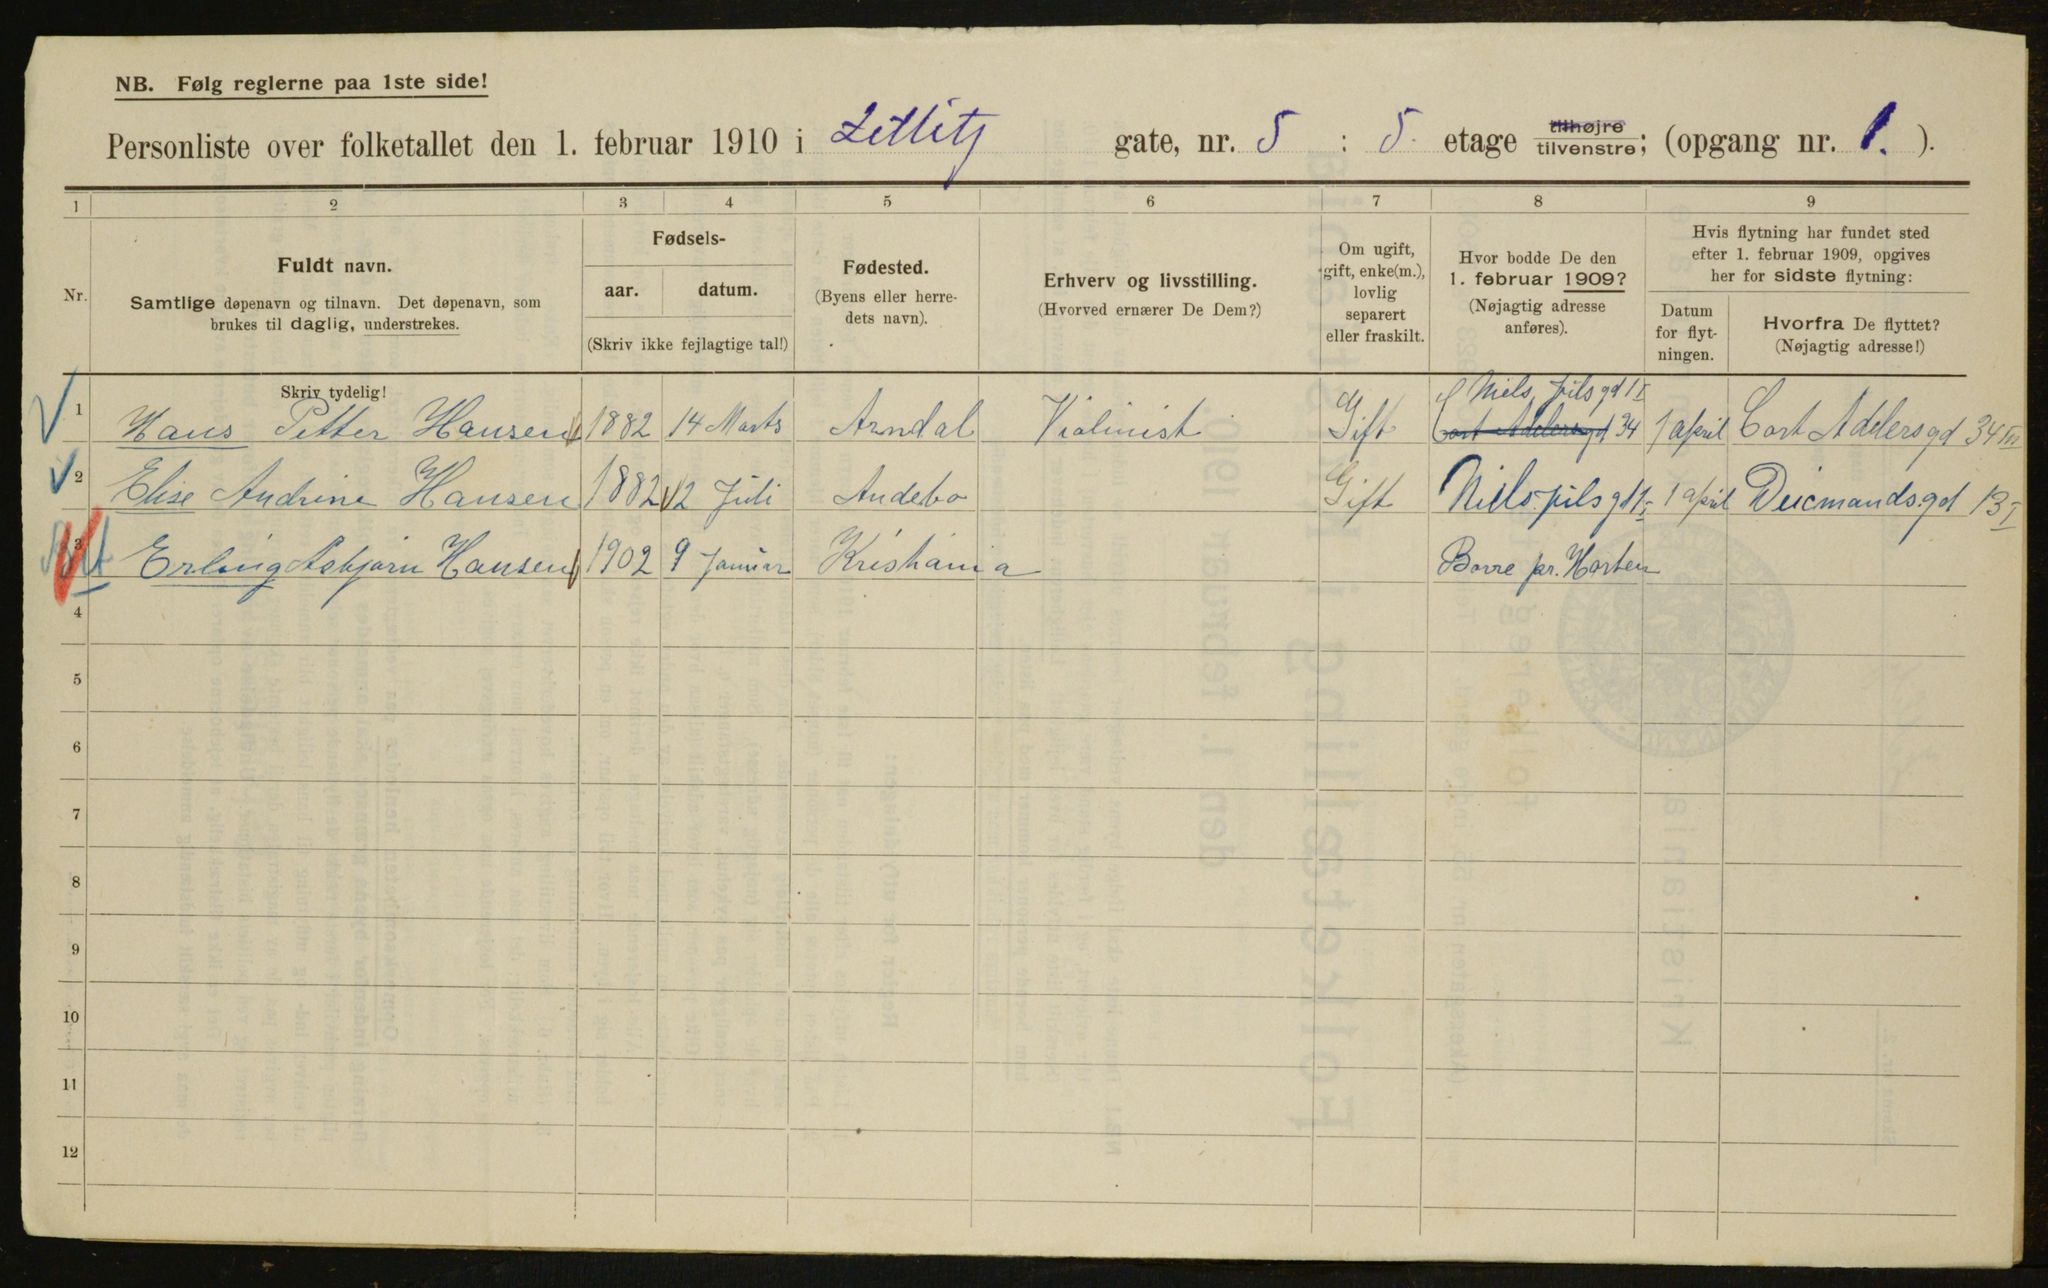 NB. Følg reglerne paa 1ste side!
Personliste over folketallet den 1. februar 1910 i Zetlitz gate, nr. 5 : 5. etage tilhøjre tilvenstre; (opgang nr. 1. ).
1 2 3 4 5 6 7 8 9
Nr.
Fuldt navn.
Samtlige døpenavn og tilnavn. Det døpenavn, som
brukes til daglig, understrekes.
Skriv tydelig!
Fødsels-
aar. datum.
(Skriv ikke fejlagtige tal!)
Fødested.
(Byens eller herre-
dets navn).
Erhverv og livsstilling.
(Hvorved ernærer De Dem?)
Om ugift,
gift, enke(m.),
lovlig
separert
eller fraskilt.
Hvor bodde De den
1. februar 1909?
(Nøjagtig adresse
anføres).
Hvis flytning har fundet sted
efter 1. februar 1909, opgives
her for sidste flytning:
Datum
for flyt-
ningen.
Hvorfra De flyttet?
(Nøjagtig adresse!)
Niels Juls gd 1 I
1 Hans Petter Hansen 1882 14 Marts Arndal Violinist Gift Cort Adelersgd 34 1 april Cort Adlersgd 34 III
2 Elise Andrine Hansen 1882 12 Juli Andebo Gift Niels Juls gd 1 I 1 april Deicmandsgd 13 I
3 Erling Asbjørn Hansen 1902 9 Januar Kristiania Borre pr. Horten
4
5
6
7
8
9
10
11
12